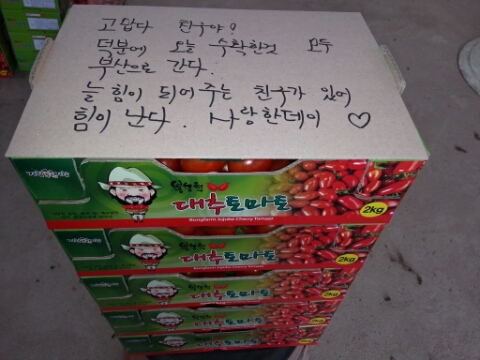 고맙다 친구야!
덕분에 오늘 수확한것 모두
부산으로 간다.
늘 힘이 되어주는 친구가 있어
힘이 난다. 사랑한데이 ♡
대추토마토
2kg
대추토마토
2kg
대추토마토
2kg
대추토마토
대추토마토